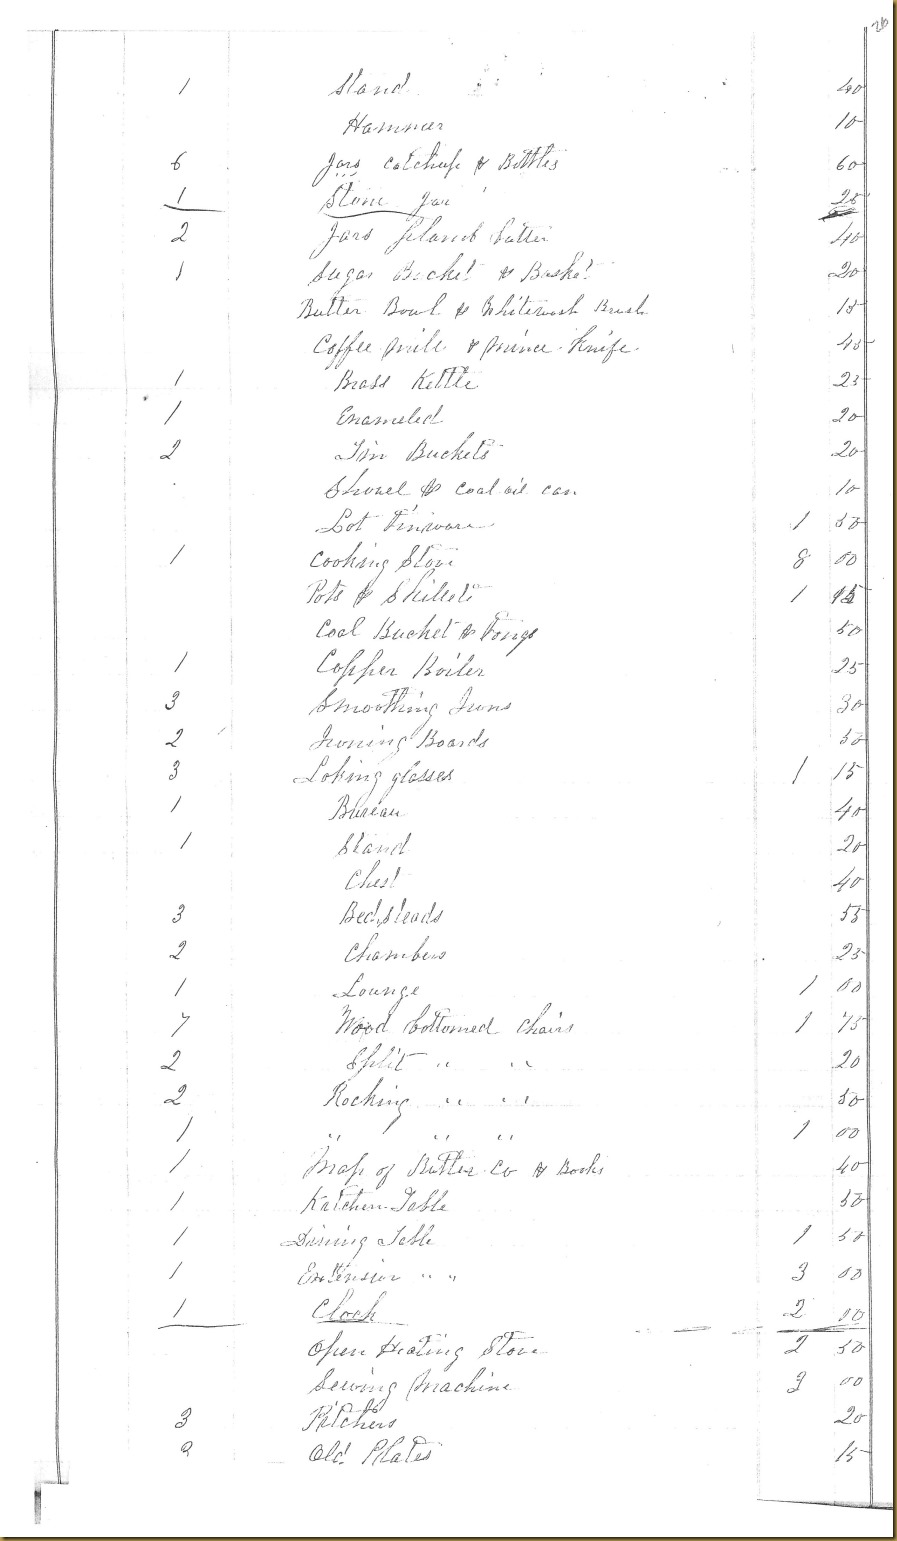 26
1 Stand 40
Hammer 10
6 Jars catchup & Bottles 60
1 Stone Jar 25
2 Jars plumb butter 40
1 Sugar Bucket & Basket 20
Butter Bowl & Whitewash Brush 15
Coffee mill & mince Knife 45
1 Brass Kettle 25
1 Enameled 20
2 Tin Buckets 20
Shovel & coal oil can 10
Lot Tinware 1 50
1 Cooking Stove 8 00
Pots & Skillets 1
Coal Bucket & Tongs 50
1 Copper Boiler 25
3 Smoothing Irons 30
2 Ironing Boards 50
3 Loking glasses 1 15
1 Bureau 40
1 Stand 20
Chest 40
3 Bedsteads 55
2 Chambers 25
1 Lounge 1 00
7 Wood bottomed Chairs 1 75
2 Split " " 20
2 Rocking " " 50
1 " " " 1 00
1 Map of Butler Co & Books 40
1 Kitchen Table 50
1 Dining Table 1 50
1 Extension " " 3 00
1 Clock 2 00
Open Heating Stove 2 50
Sewing Machine 3 00
3 Pitchers 20
Old Plates 15